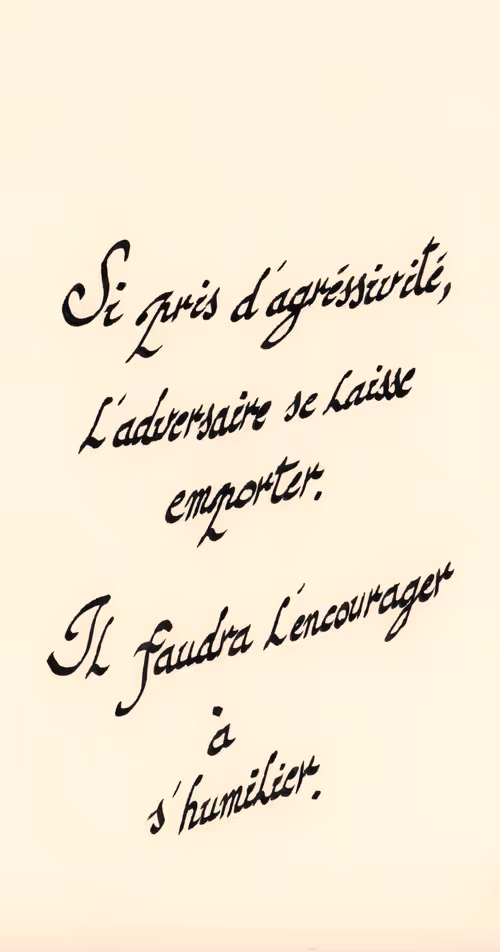 Si pris d'agréssivité,
L'adversaire se laisse
emporter.
Il faudra l'encourager
à
s'humilier.